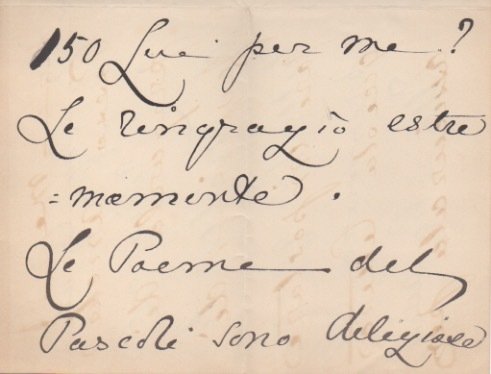 150 Lire per me?
Le ringrazio estre
=mamente.
Le Poeme del
Pascoli sono deliziose